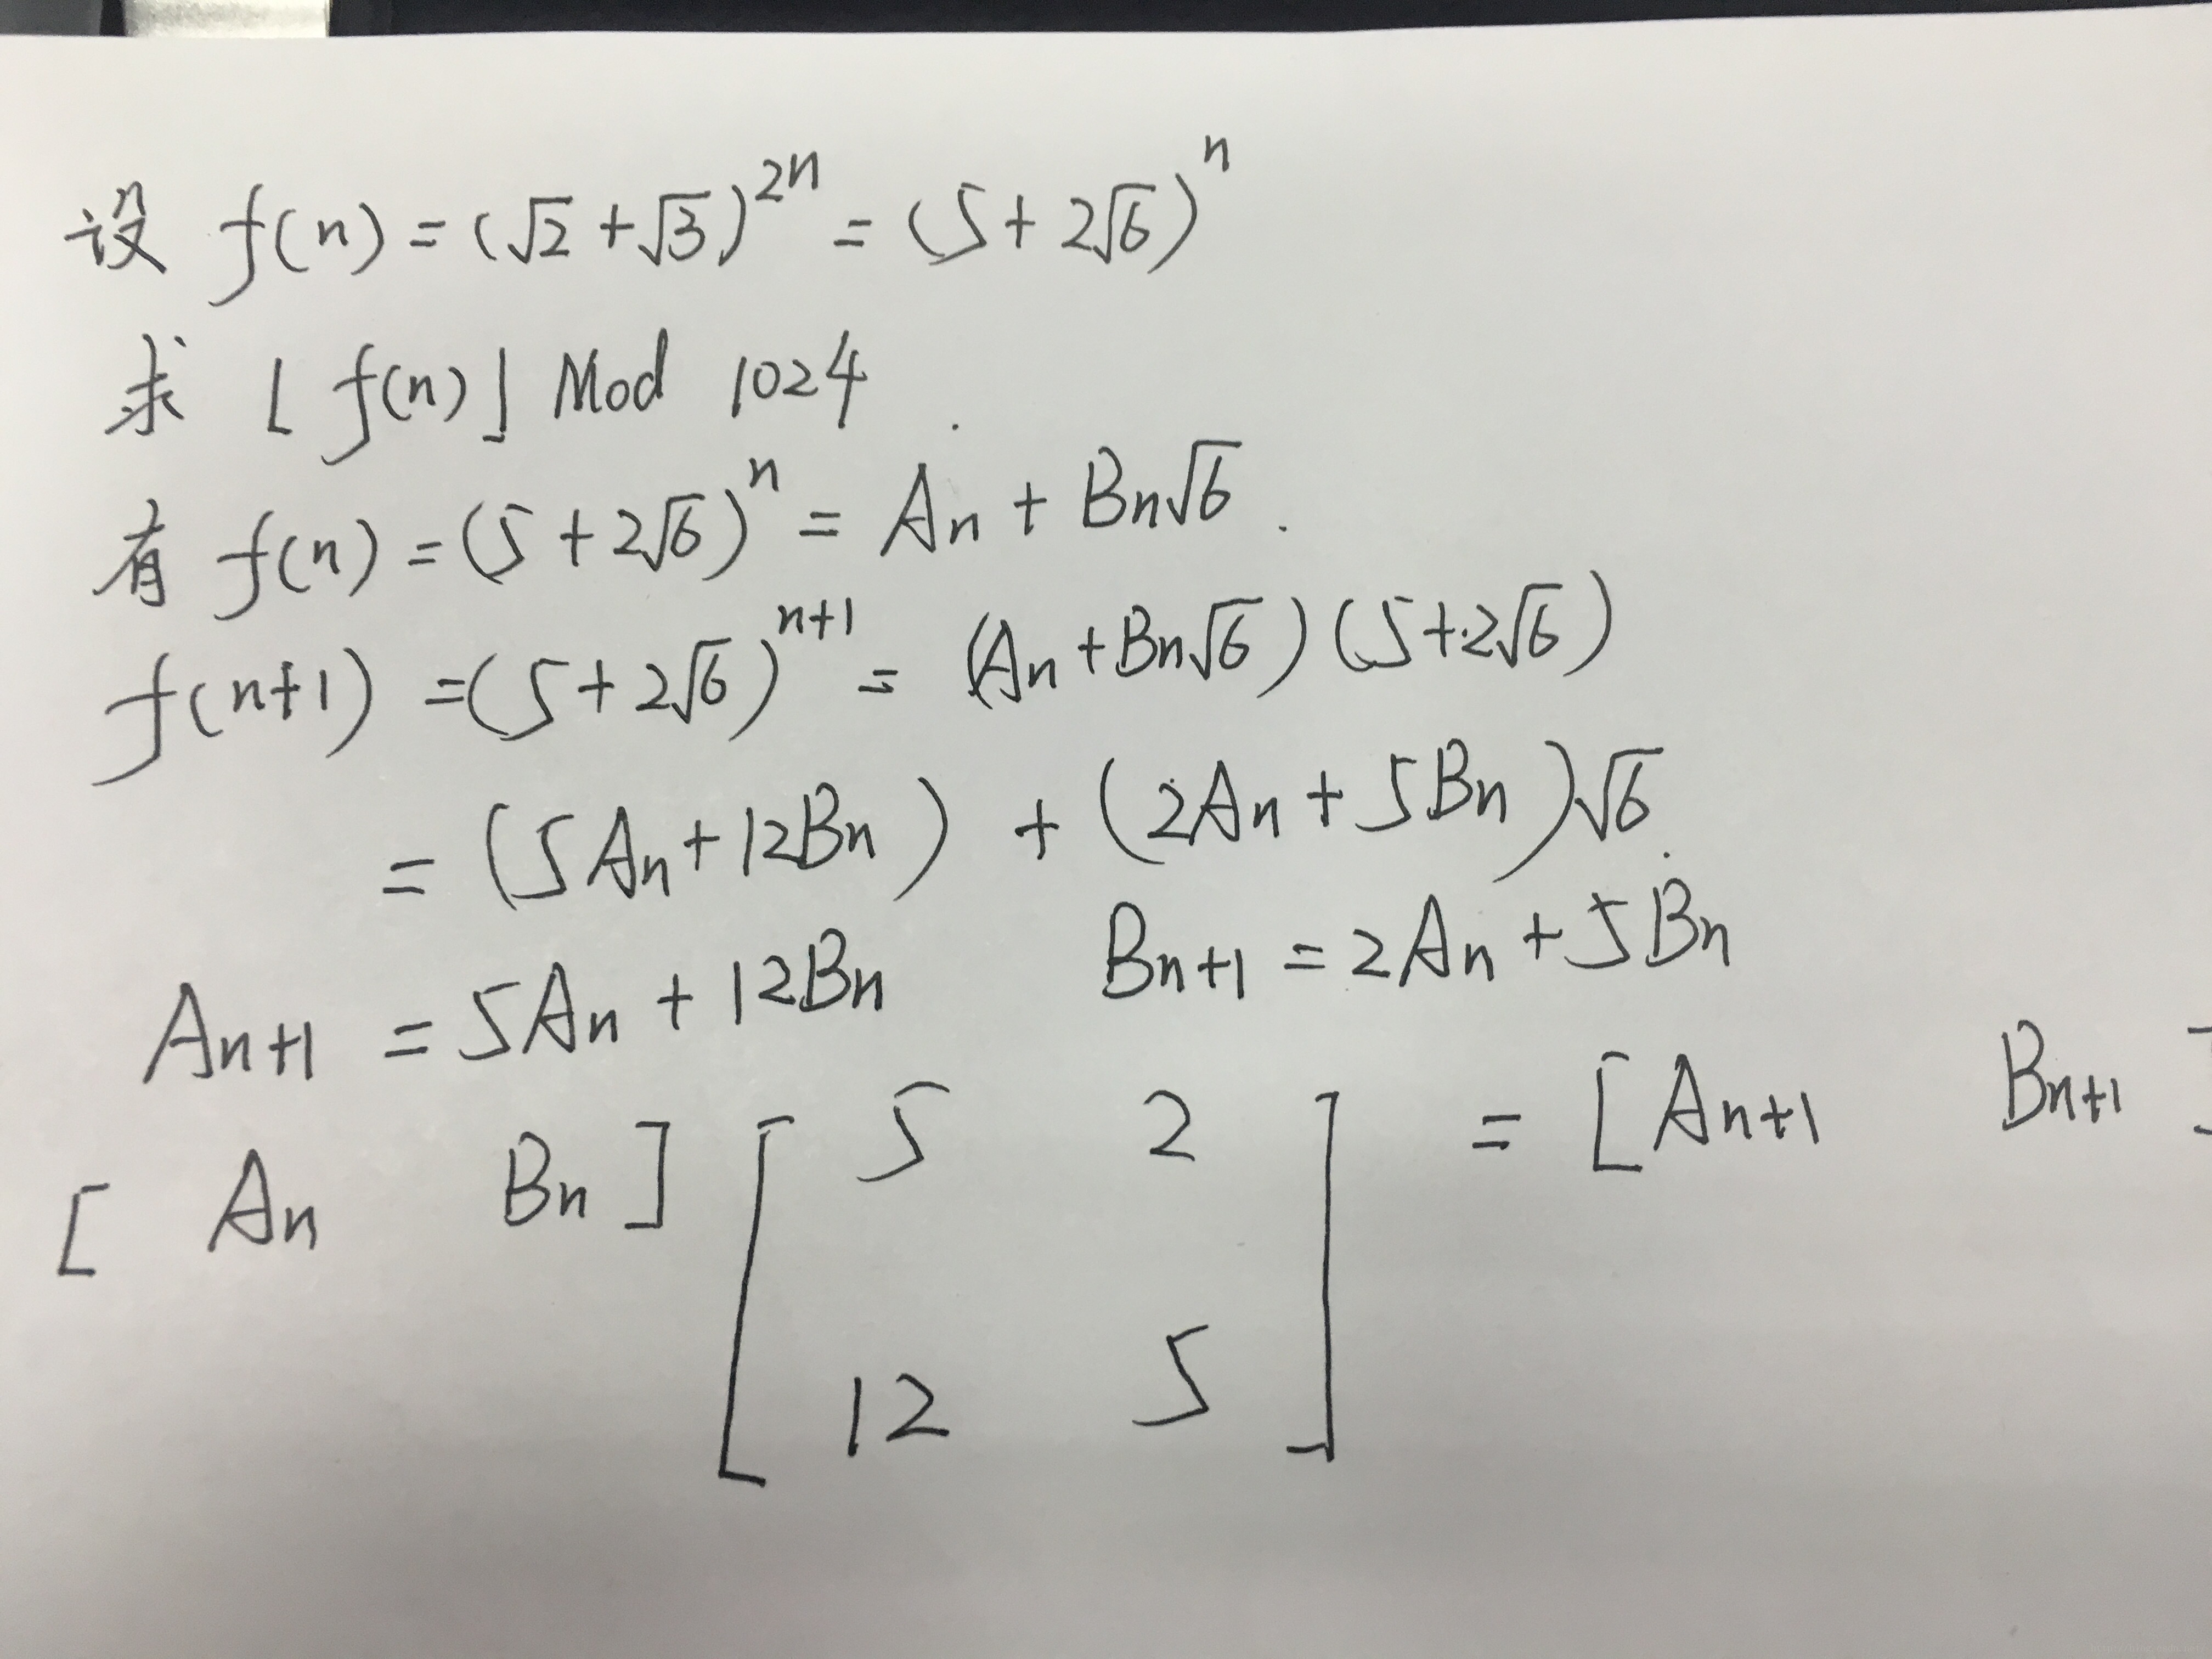 设 f(n) = (√2 + √3)^{2n} = (5 + 2√6)^n
求 ⌊ f(n) ⌋ Mod 1024 .
有 f(n) = (5 + 2√6)^n = An + Bn√6 .
f(n+1) = (5 + 2√6)^{n+1} = (An + Bn√6) (5 + 2√6)
= (5An + 12Bn) + (2An + 5Bn)√6 .
An+1 = 5An + 12Bn Bn+1 = 2An + 5Bn
[ An Bn ] [ 5 2 = [ An+1 Bn+1 ]
12 5 ]